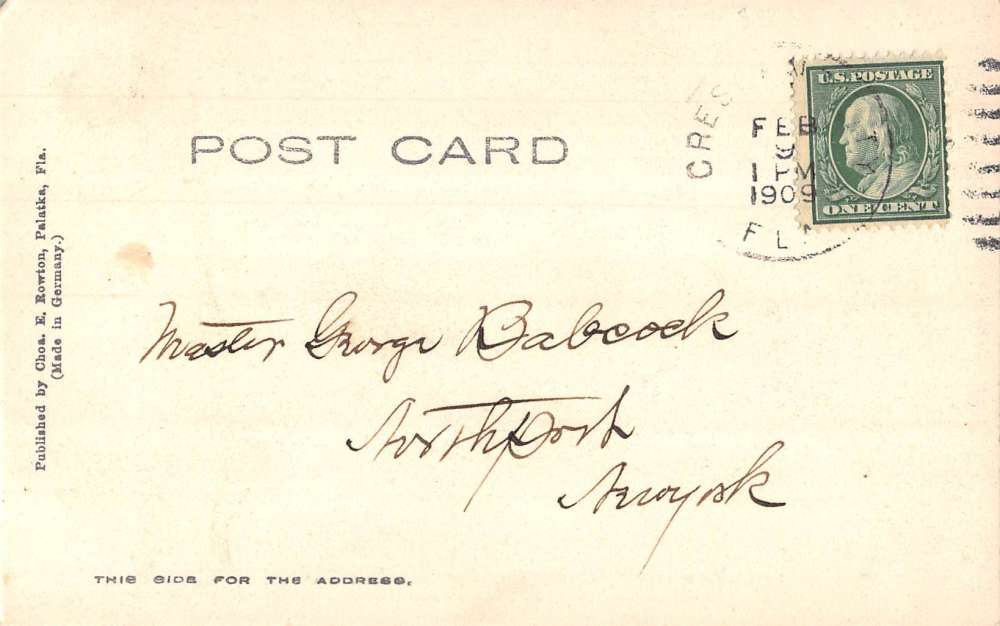 POST CARD
CRES
FEB
9
1 PM
1909
FLA
U.S. POSTAGE
ONE CENT
Published by Choa. E. Rowton, Palatka, Fla.
(Made in Germany.)
Master George Babcock
Northport
New York
THIS SIDE FOR THE ADDRESS.